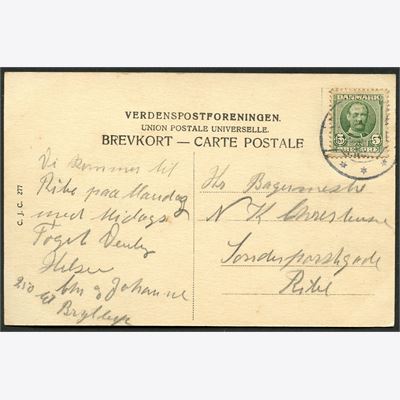 VERDENSPOSTFORENINGEN.
UNION POSTALE UNIVERSELLE.
BREVKORT — CARTE POSTALE
C. J. C. 277
DANMARK
5 5
ØRE ØRE
Vi kommer til
Ribe paa Mandag
med Midags
Toget Venlig
Hilsen
og Johanne
Hr Bagermester
N K Christensen
Sønderportsgade
Ribe